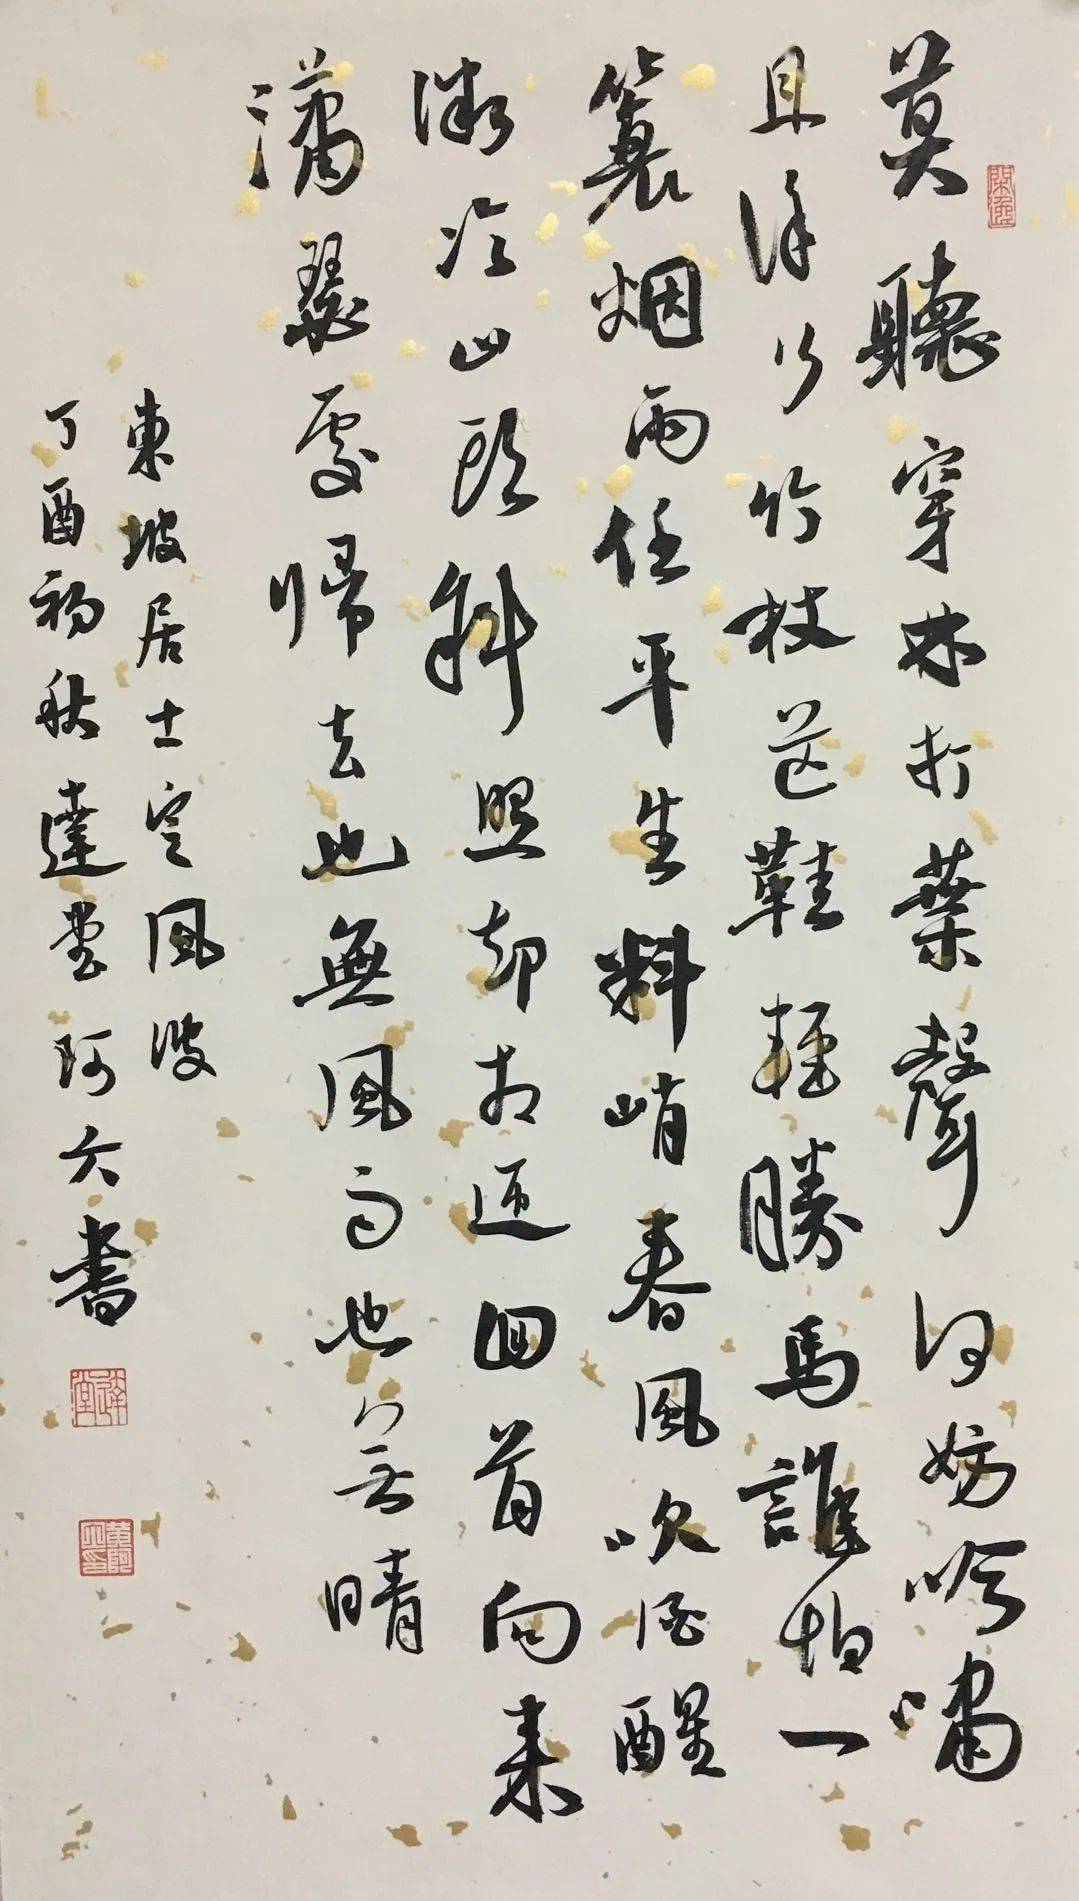 莫聽穿林打葉聲何妨吟嘯
且徐行竹枝芒鞋輕勝馬誰怕一
簑烟雨任平生料峭春風吹酒醒
微冷山頭斜照却相迎回首向來
瀟瑟處歸去也無風雨也無晴
東坡居士定風波
丁酉初秋達堂阿六書